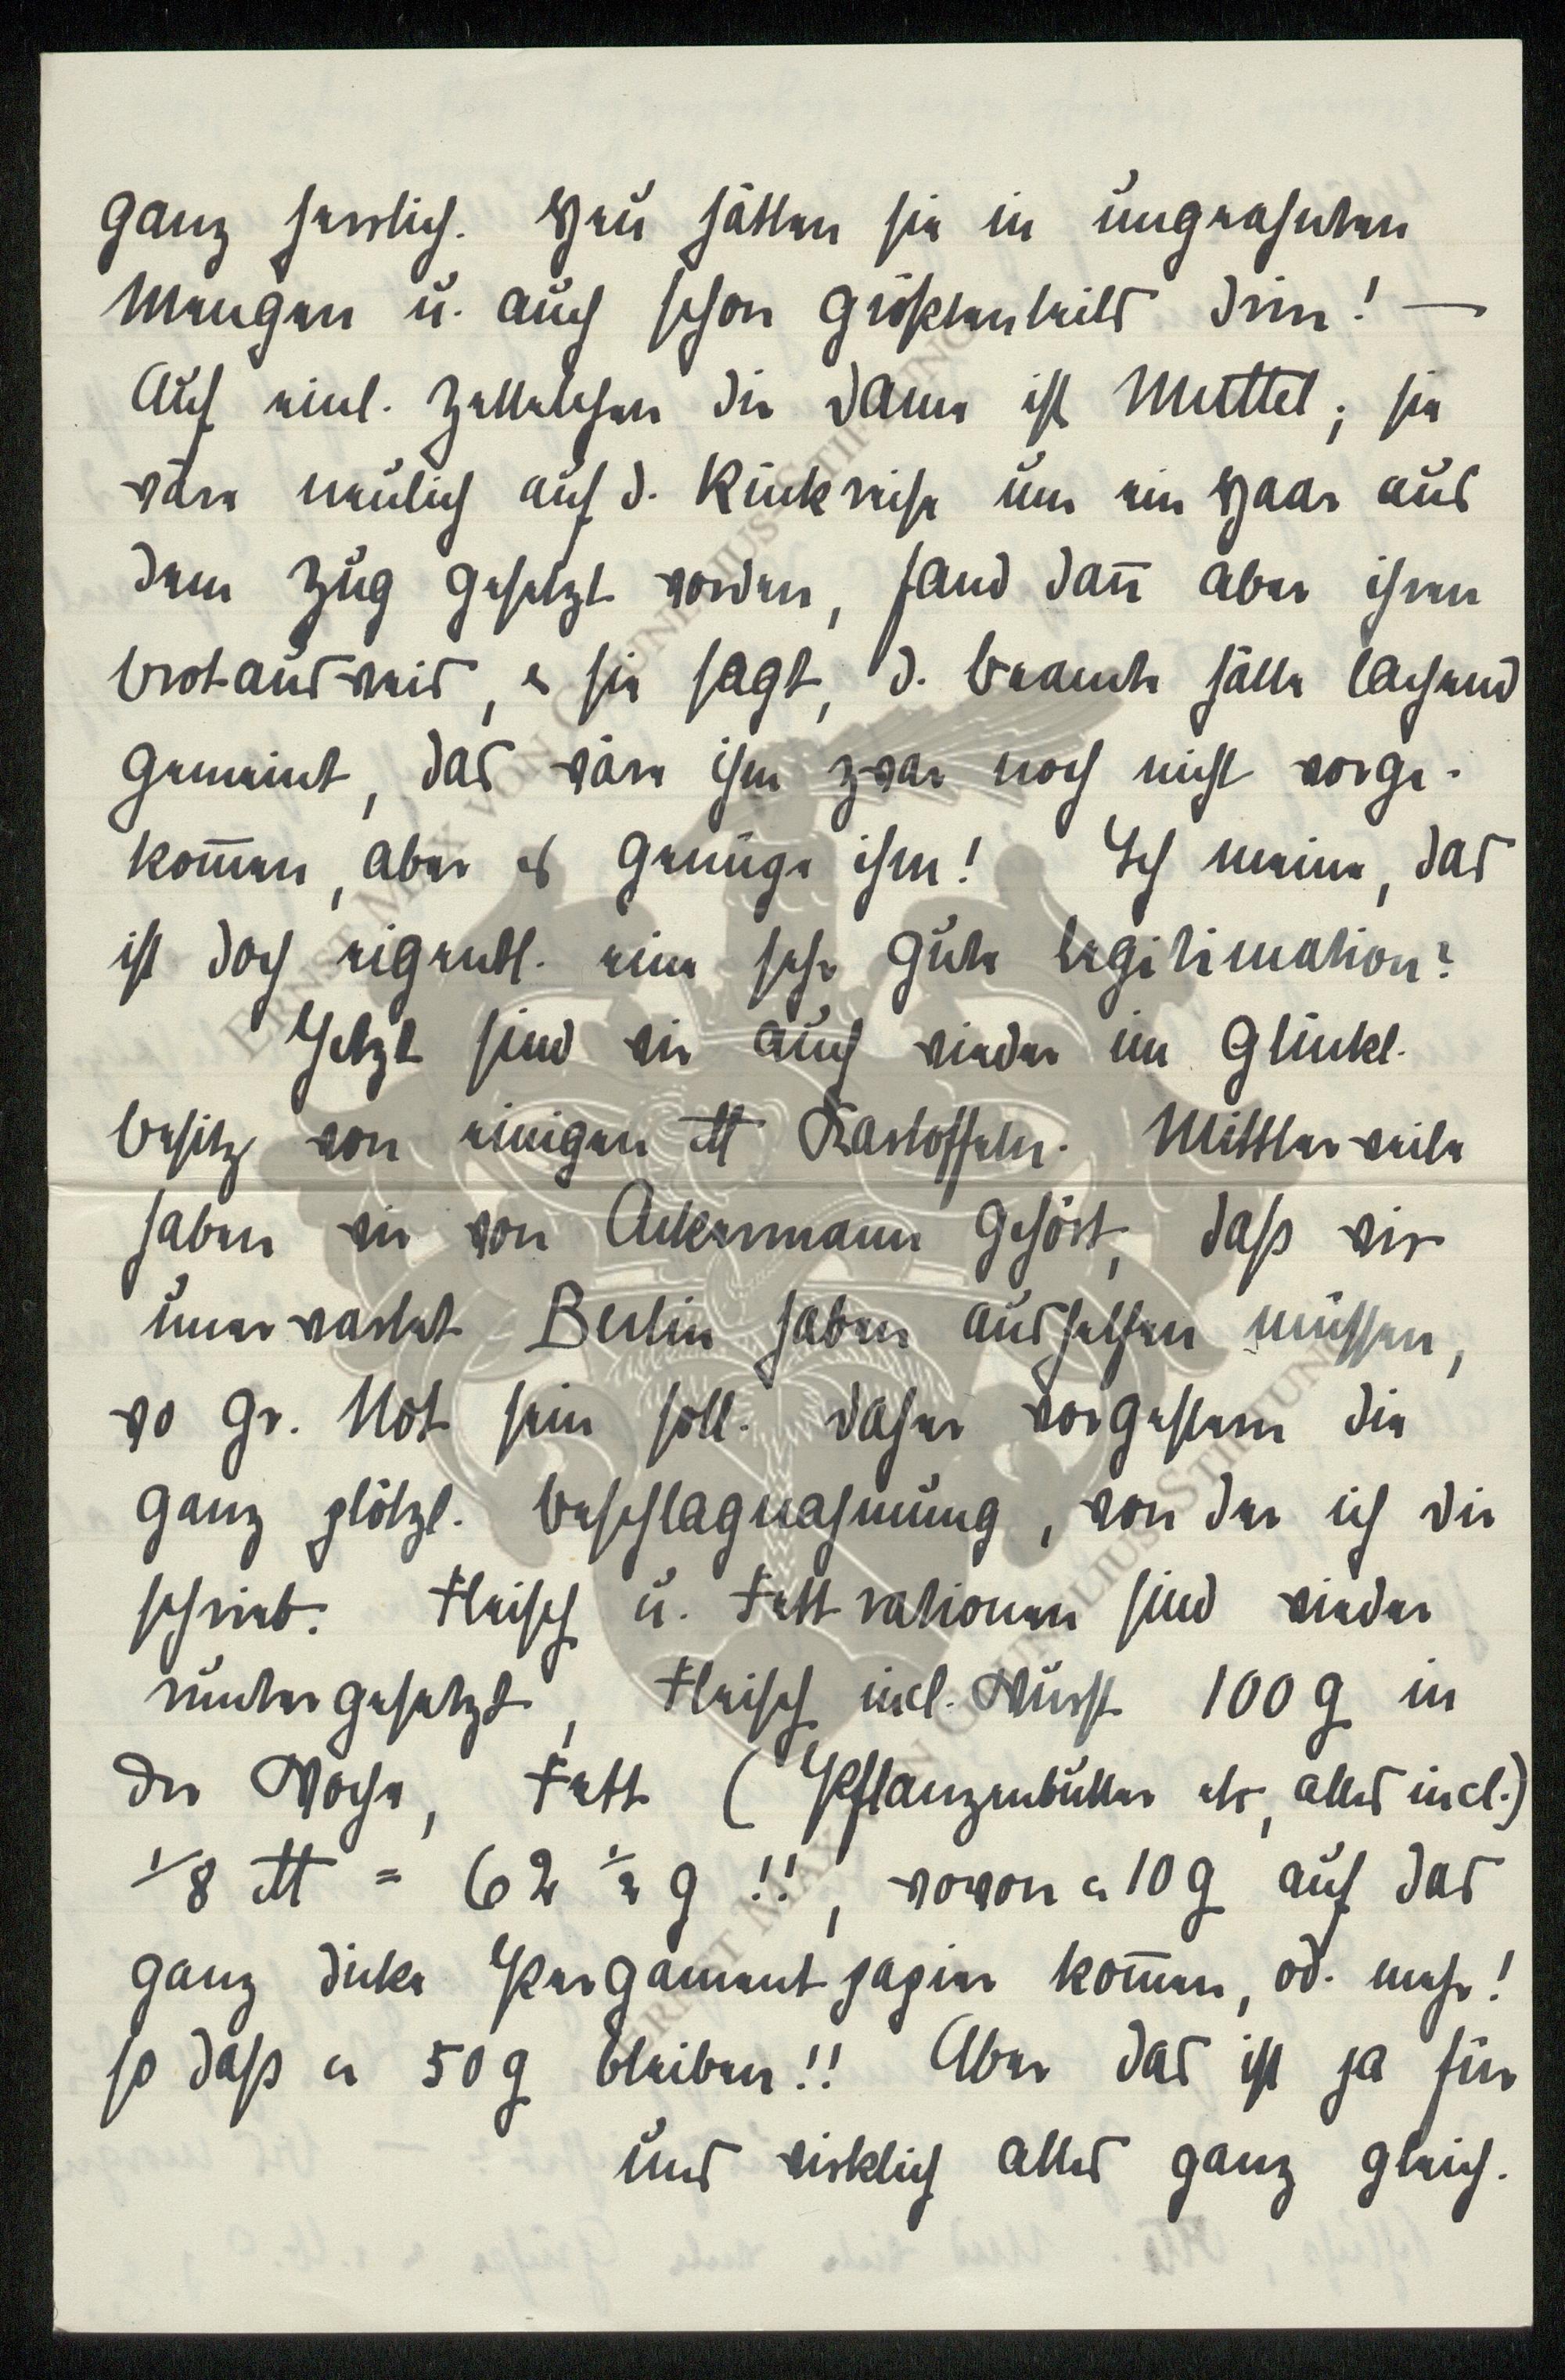 ganz herrlich. Heu hätten sie in ungeahnten
Mengen u. auch schon größtenteils drin! —
Auch einl. Zettelchen die Dame ist Muttel; sie
wäre neulich auf d. Rückreise um ein Haar aus
dem Zug gesetzt worden, fand dann̄ aber ihren
Brotausweis, u. sie sagt, d. Beamte hätte lachend
gemeint, das wäre ihm zwar noch nicht vorge-
kom̄en, aber es genüge ihm! Ich meine, das
ist doch eigentl. eine sehr gute Legitimation?
Jetzt sind wir auch wieder im glückl.
Besitz von einigen ℔ Kartoffeln. Mittlerweile
haben wir von Ackermann gehört, daß wir
unerwartet Berlin haben aushelfen müssen,
wo gr. Not sein soll. Daher vorgestern die
ganz plötzl. Beschlagnahmung, von der ich Dir
schrieb. Fleisch u. Fettrationen sind wieder
runtergesetzt, Fleisch incl. Wurst 100 g in
der Woche, Fett (Pflanzenbutter etc, alles incl.)
1/8 ℔ = 62 ½ g !!, wovon ca 10 g auf das
ganz dicke Pergamentpapier kom̄en, od. mehr!
so daß ca 50 g bleiben!! Aber das ist ja für
uns wirklich alles ganz gleich.
ERNST MAX VON GRUNELIUS-STIFTUNG
ERNST MAX VON GRUNELIUS-STIFTUNG